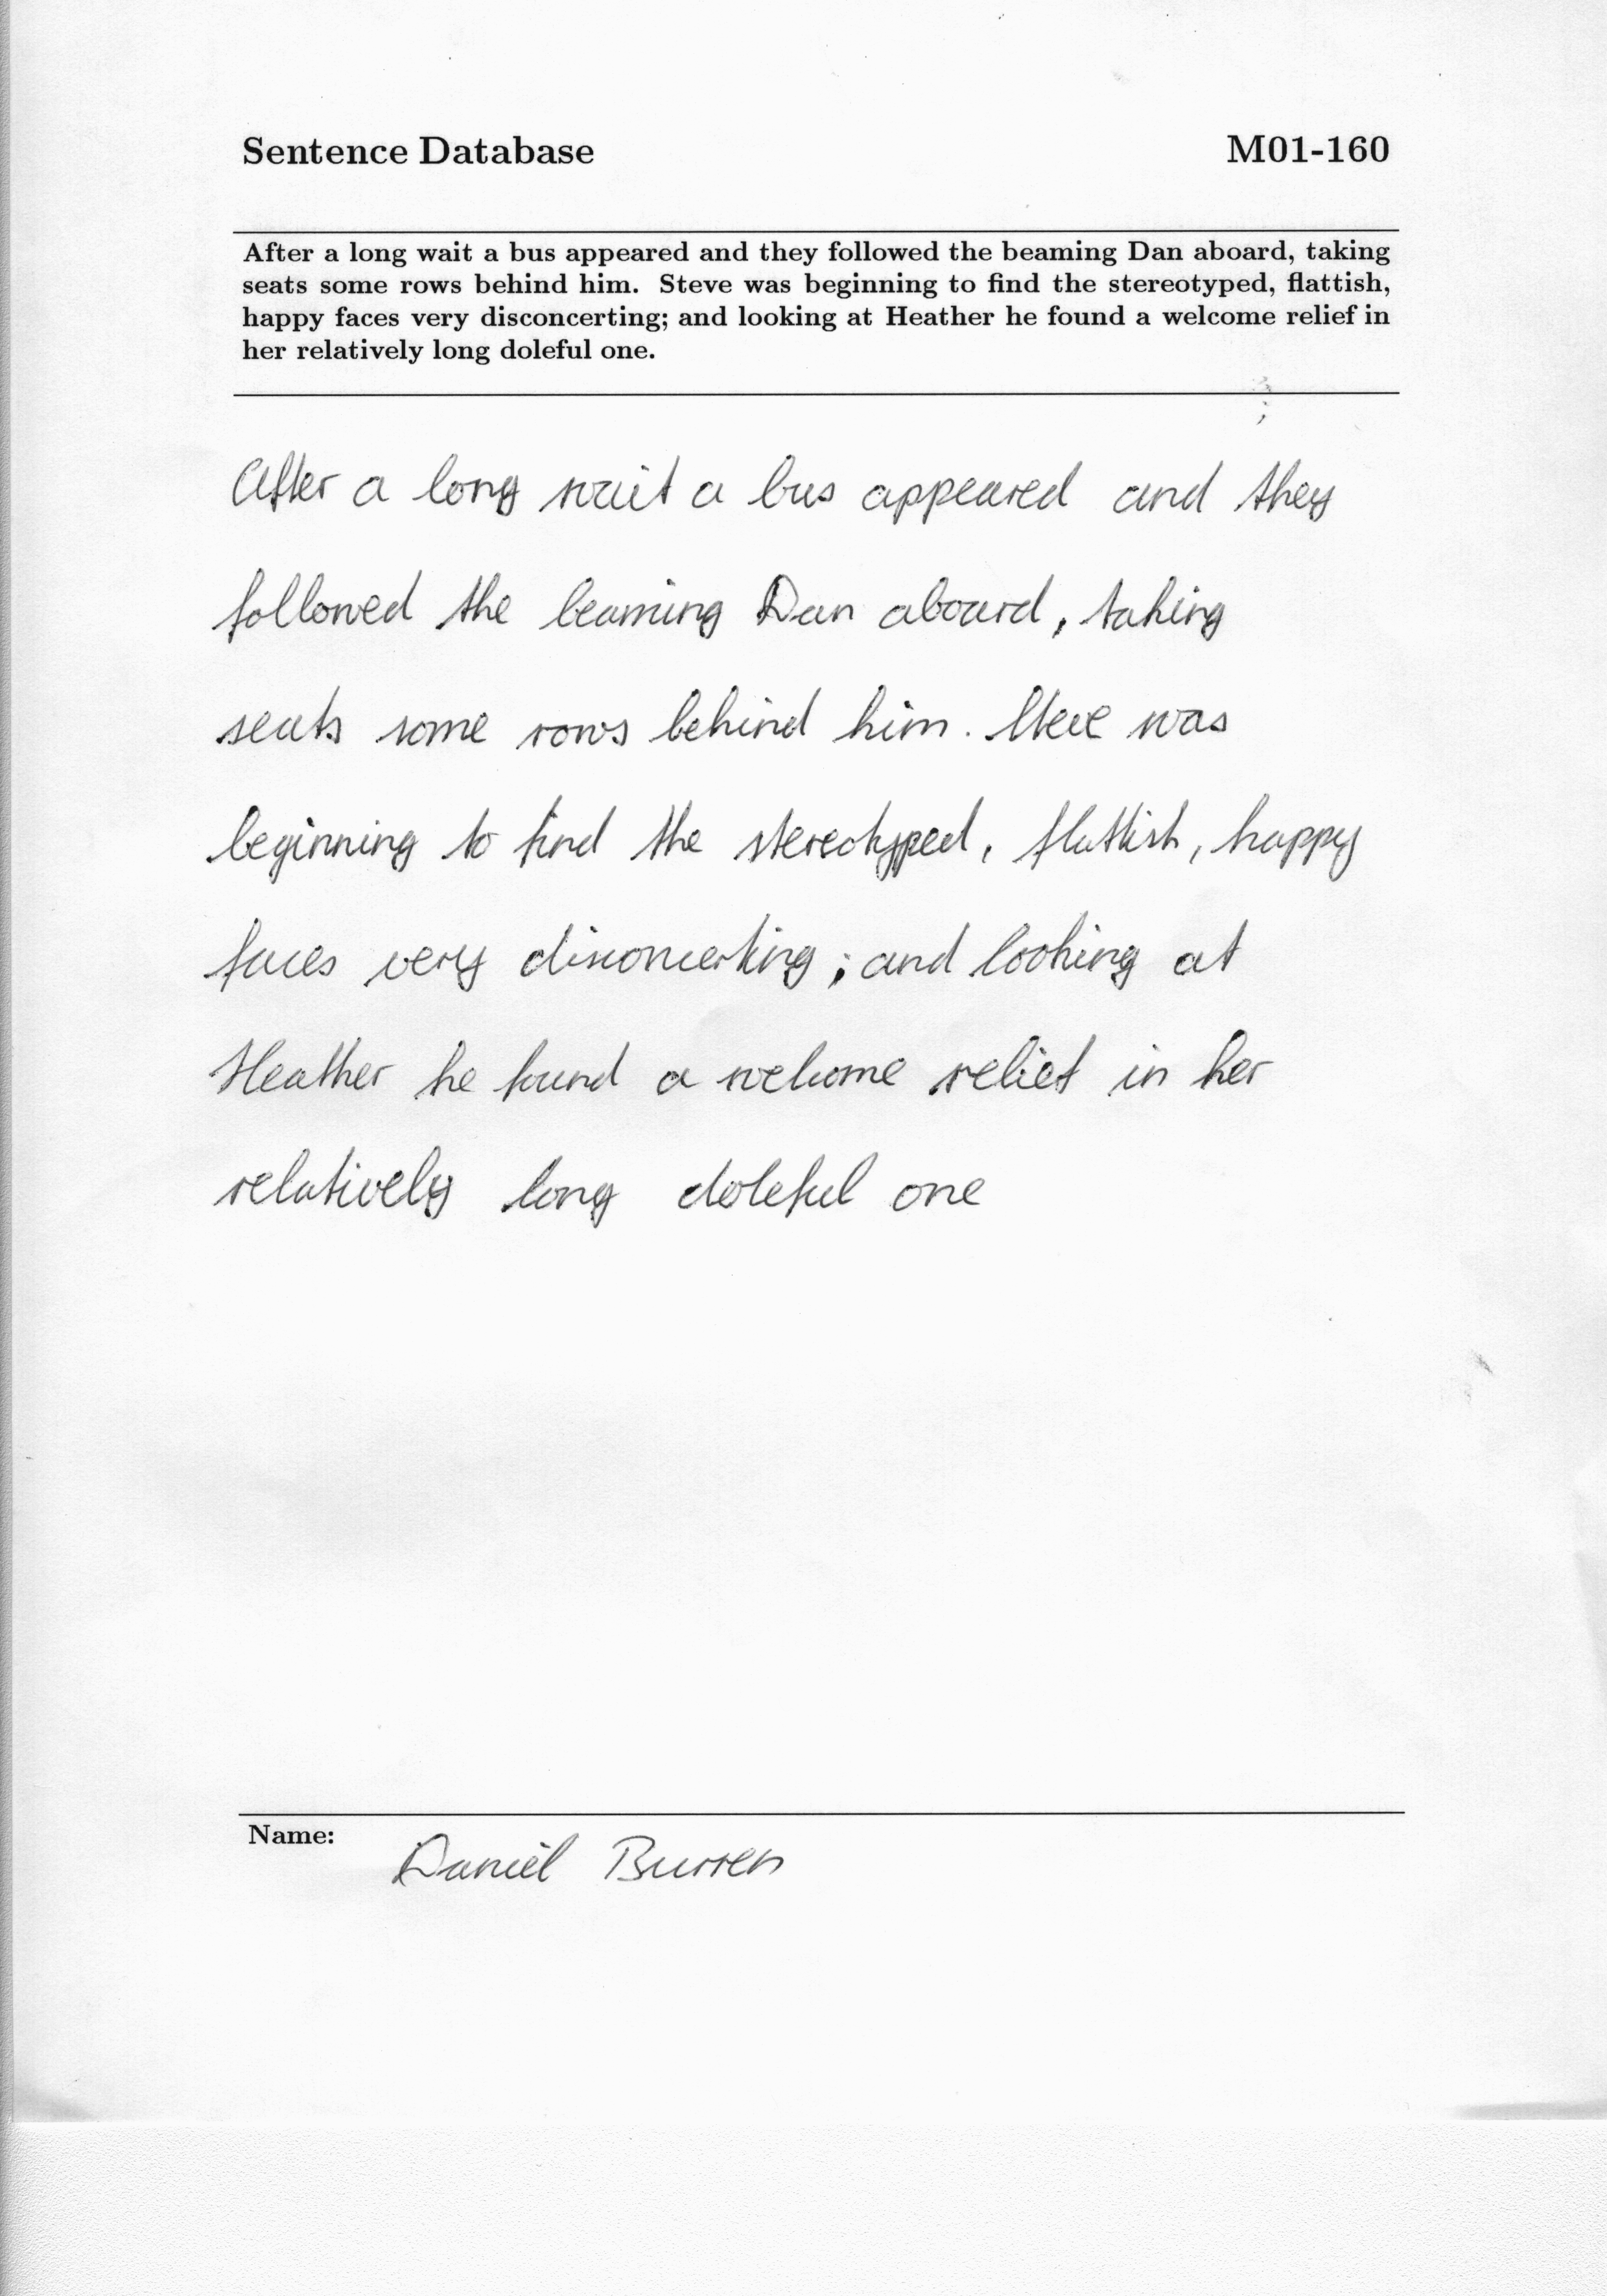 Sentence Database M01-160
After a long wait a bus appeared and they followed the beaming Dan aboard, taking
seats some rows behind him. Steve was beginning to find the stereotyped, flattish,
happy faces very disconcerting; and looking at Heather he found a welcome relief in
her relatively long doleful one.
After a long wait a bus appeared and they
followed the beaming Dan aboard, taking
seats some rows behind him. Steve was
beginning to find the stereotyped, flattish, happy
faces very disconcerting; and looking at
Heather he found a welcome relief in her
relatively long doleful one
Name: Daniel Burren